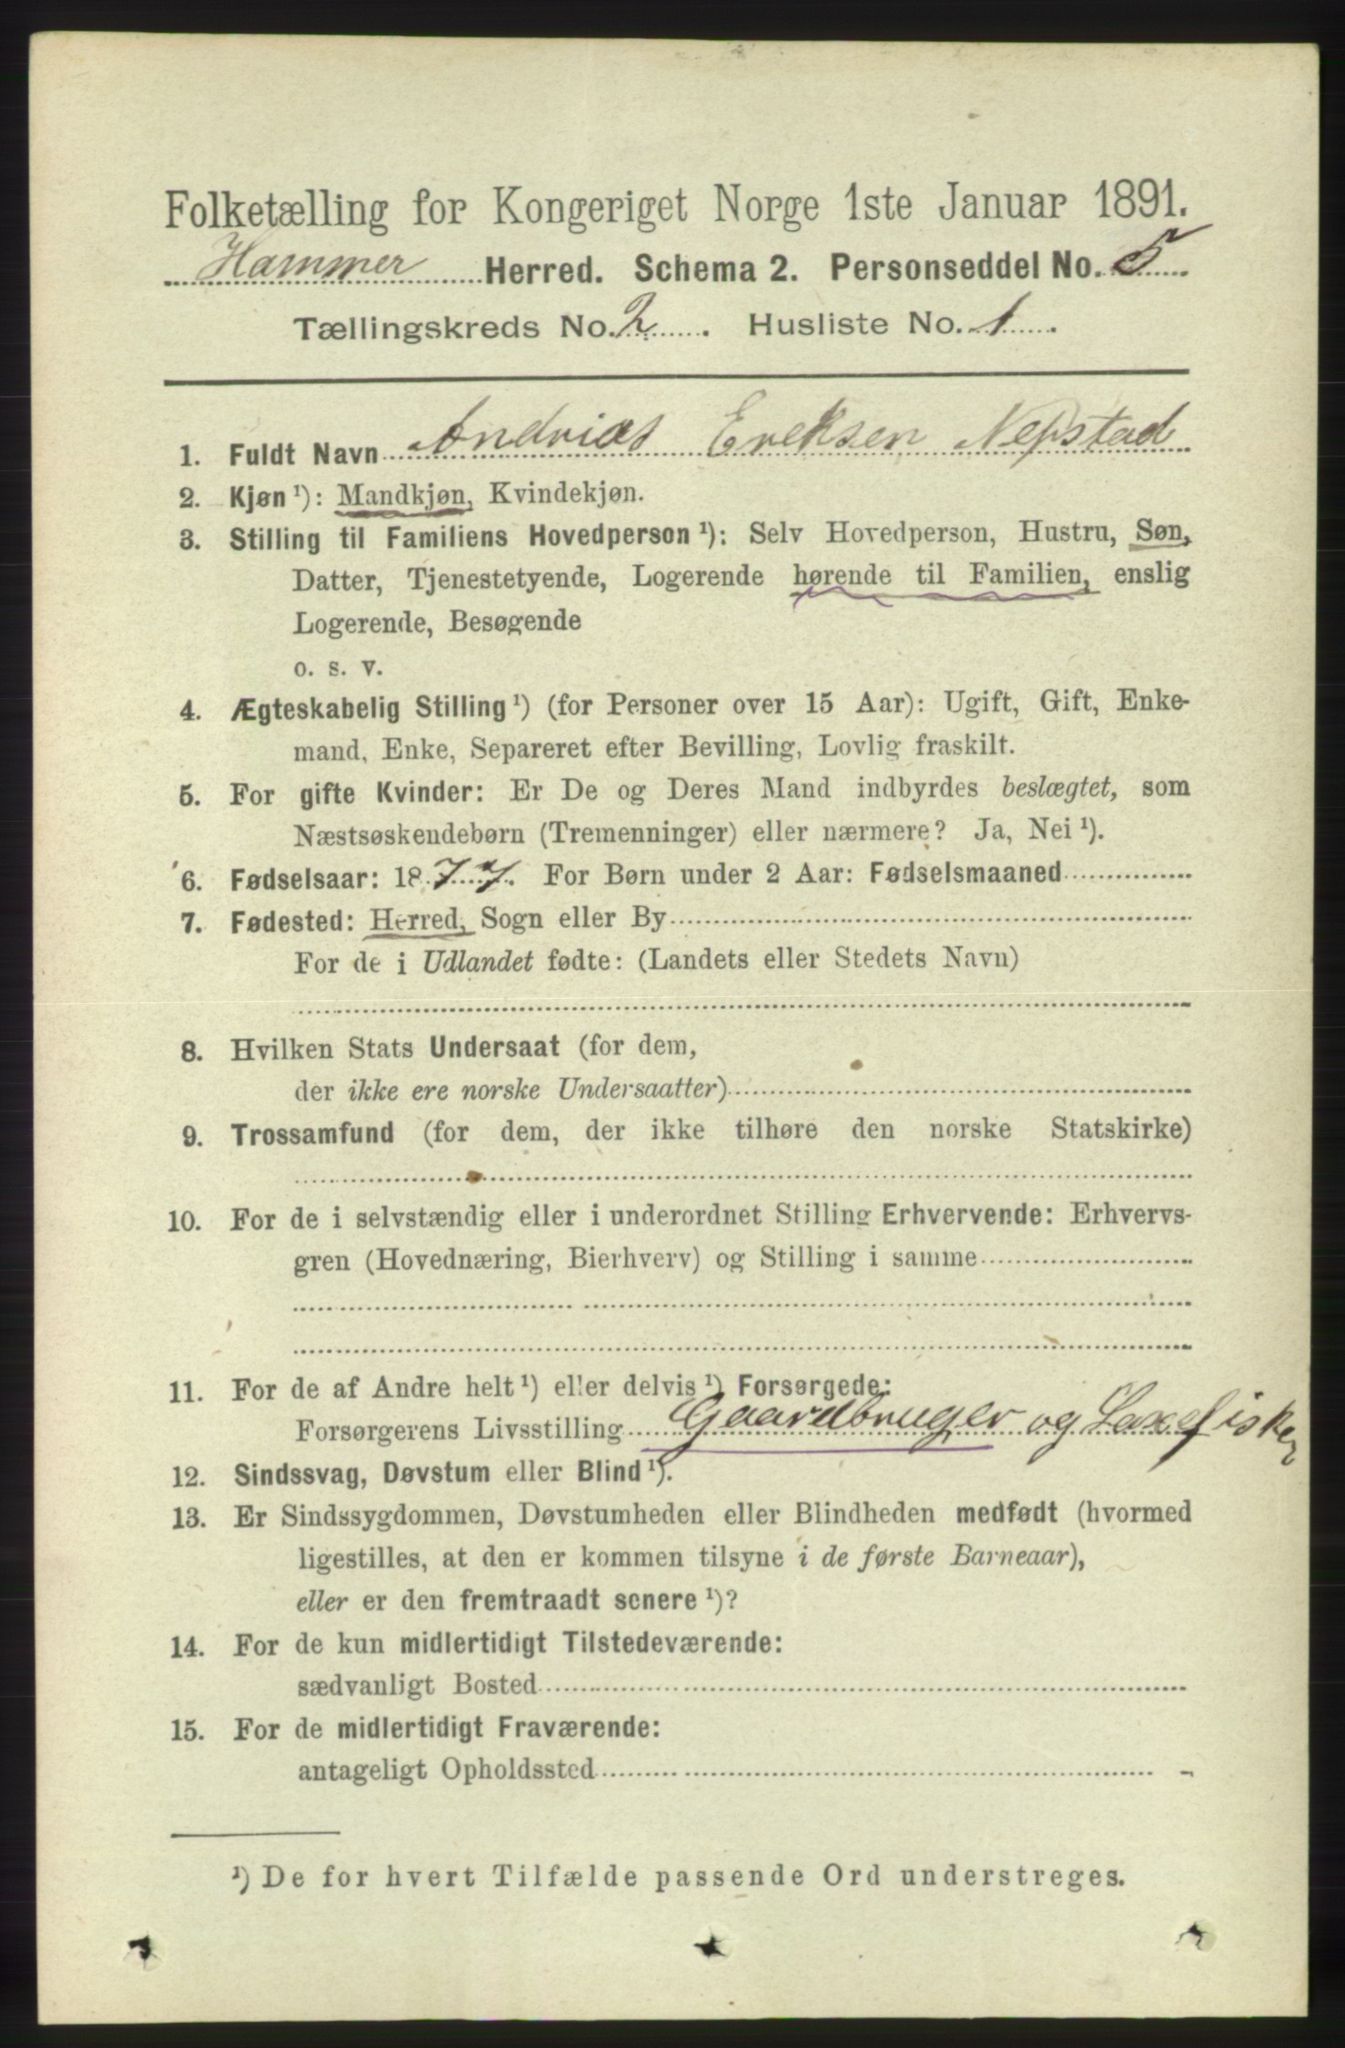 Folketælling for Kongeriget Norge 1ste Januar 1891.
Hammer Herred. Schema 2. Personseddel No. 5
Tællingskreds No. 2. Husliste No. 1.
1. Fuldt Navn Andrias Ereksen Nepstad
2. Kjøn ¹): Mandkjøn, Kvindekjøn.
3. Stilling til Familiens Hovedperson ¹): Selv Hovedperson, Hustru, Søn,
Datter, Tjenestetyende, Logerende hørende til Familien, enslig
Logerende, Besøgende
o. s. v.
4. Ægteskabelig Stilling ¹) (for Personer over 15 Aar): Ugift, Gift, Enke-
mand, Enke, Separeret efter Bevilling, Lovlig fraskilt.
5. For gifte Kvinder: Er De og Deres Mand indbyrdes beslægtet, som
Næstsøskendebørn (Tremenninger) eller nærmere? Ja, Nei ¹).
6. Fødselsaar: 1877. For Børn under 2 Aar: Fødselsmaaned
7. Fødested: Herred, Sogn eller By
For de i Udlandet fødte: (Landets eller Stedets Navn)
8. Hvilken Stats Undersaat (for dem,
der ikke ere norske Undersaatter)
9. Trossamfund (for dem, der ikke tilhøre den norske Statskirke)
10. For de i selvstændig eller i underordnet Stilling Erhvervende: Erhvervs-
gren (Hovednæring, Bierhverv) og Stilling i samme
11. For de af Andre helt ¹) eller delvis ¹) Forsørgede:
Forsørgerens Livsstilling Gaardbruger og Laxefisker
12. Sindssvag, Døvstum eller Blind ¹).
13. Er Sindssygdommen, Døvstumheden eller Blindheden medfødt (hvormed
ligestilles, at den er kommen tilsyne i de første Barneaar),
eller er den fremtraadt senere ¹)?
14. For de kun midlertidigt Tilstedeværende:
sædvanligt Bosted
15. For de midlertidigt Fraværende:
antageligt Opholdssted
¹) De for hvert Tilfælde passende Ord understreges.